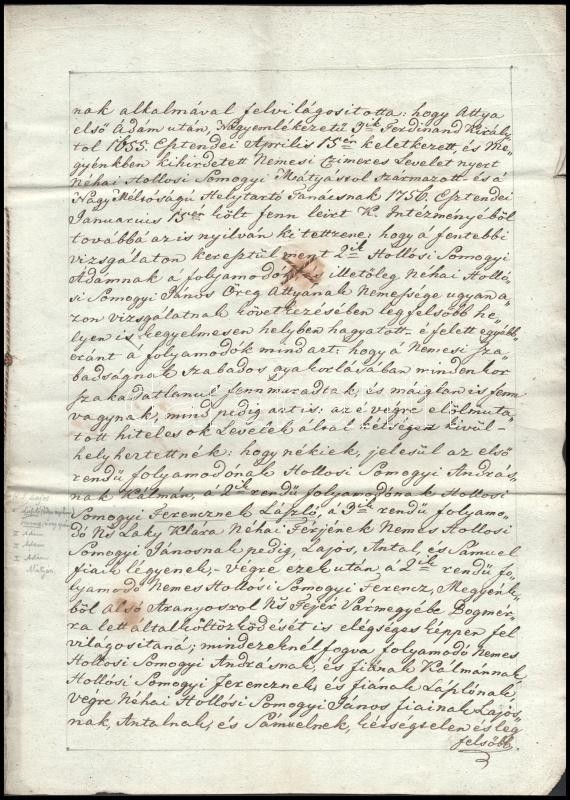 nak alkalmával felvilágositotta: hogy Attya
első Ádám után, Nagyemlékezetű 3ik Ferdinand Király„
tol 1655. Esztendei Április 15én keletkezett, és Me„
gyénkben kihirdetett Nemesi Czimeres Levelet nyert
Néhai Hollosi Somogyi Mátyásrol Származott– és á
Nagy Méltoságú Helytartó Tanácsnak 1756. Esztendei
Januarius 15én költ fenn leirt K. Intézményéből
továbbá az is nyilván kitettzene: hogy á fentebbi
vizsgálaton keresztül ment 2ik Hollósi Somogyi
Ádámnak á folyamodók illetőleg Néhai Holló„
si Somogyi János Öreg Attyának Nemessége ugyan a„
zon vizsgálatnak következésében legfelsőbb he„
lyen is kegyelmesen helyben hagyatott– é felett egyébb„
eránt á folyamodók mind azt: hogy á Nemesi Sza„
badságnak Szabados gyakorlásában mindenkor
szakadatlanul fennmaradtak, és máiglan is fenn
vagynak, mind pedig azt is: az é végre előlmuta„
tott hiteles ok Levelek által kétségen kivül–
helyheztették: hogy nékiek, jelesül az első
rendű folyamodónak Hollosi Somogyi András„
nak Kálmán, á 2ik rendű folyamodónak Hollósi
Somogyi Ferencznek László, á 3ik rendű folyamo„
dó Ns Laky Klára Néhai Férjének Nemes Hollosi
Somogyi Jánosnak pedig, Lajos, Antal, és Sámuel
fiaik légyenek,– végre ezek után á 2ik rendű fo„
lyamodó Nemes Hollósi Somogyi Ferencz, Megyénk„
ből alsó Aranyosrol Ns Fejér Vármegyébe Bogmér„
ra lett általköltözködését is elégséges képpen fel
világositaná; mindezeknél fogva folyamodó Nemes
Hollosi Somogyi Andrásnak, és fiának Kálmánnak,
Hollósi Somogyi Ferencznek, és fiának Lászlónak
végre Néhai Hollósi Somogyi János fiainak Lajos„
nak, Antalnak, és Sámuelnek, kétségtelen és leg
felsőbb
Lajos
I Ádám
I Ádám
I Ádám
Mátyás